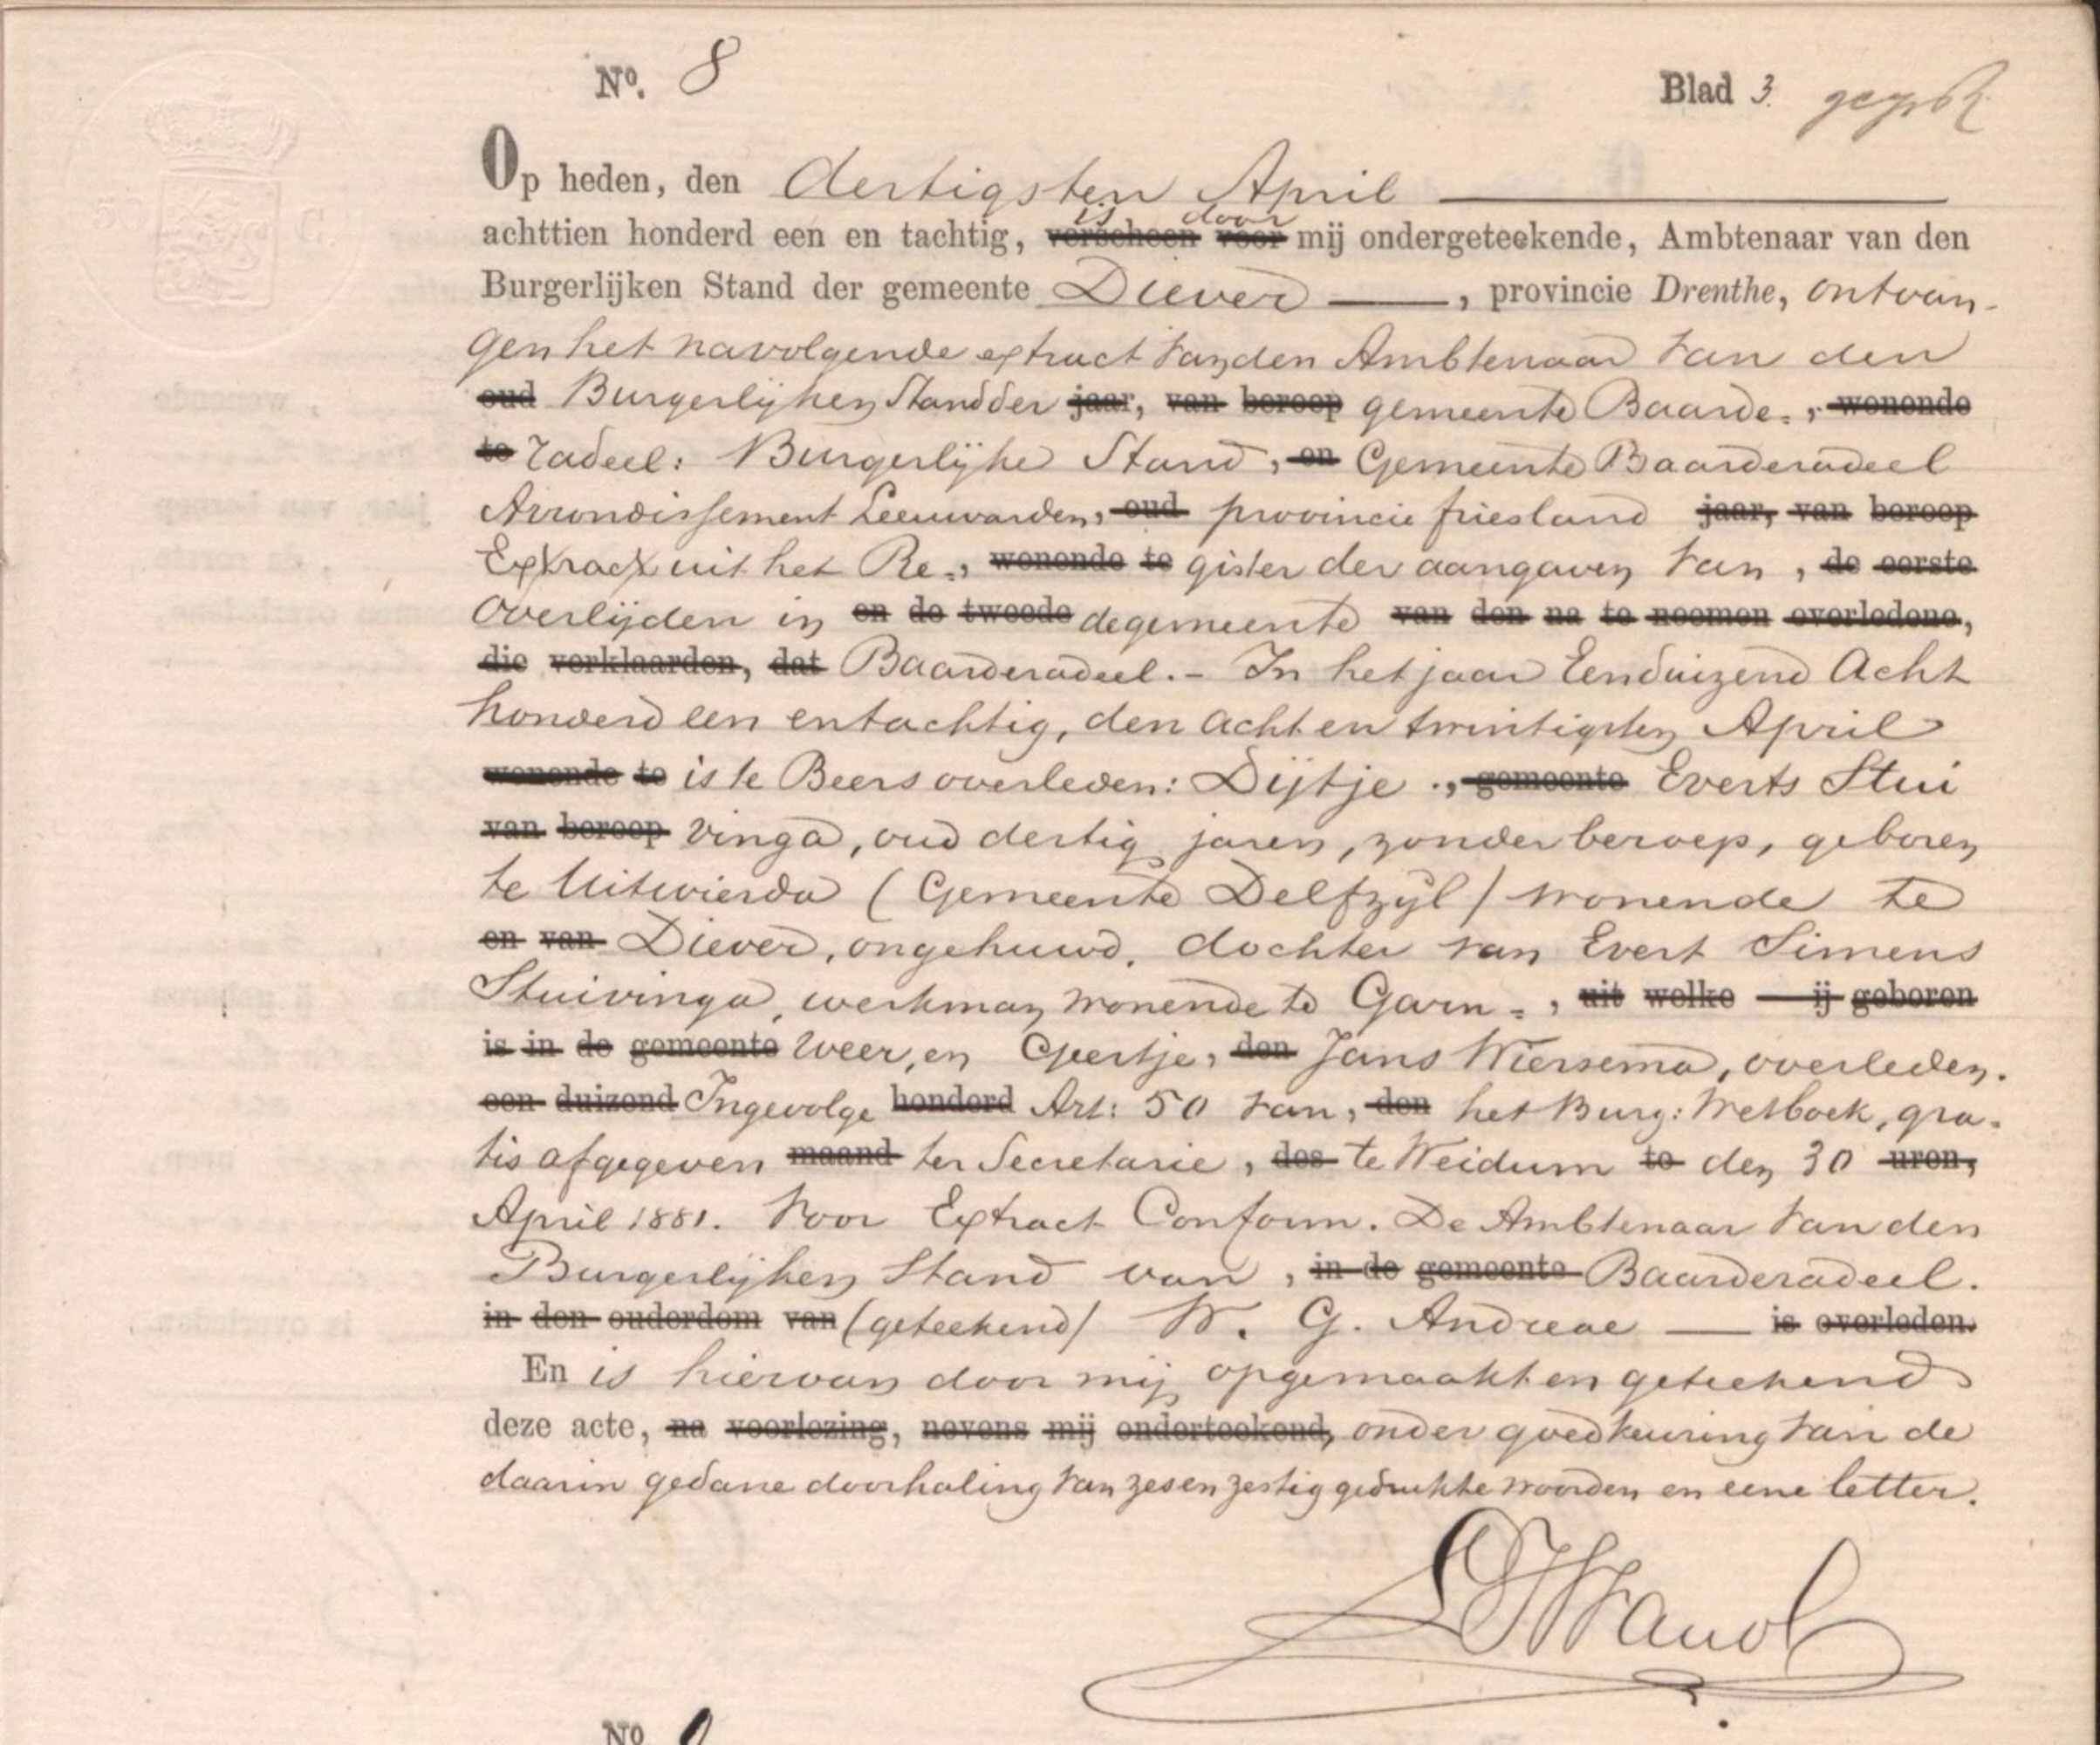 No. 8 Blad 3.
Op heden, den dertigsten April
is door
achttien honderd een en tachtig, verscheen voor mij ondergeteekende, Ambtenaar van den
Burgerlijken Stand der gemeente Diever, provincie Drenthe, ontvan-
gen het navolgende extract van den Ambtenaar van den
oud Burgerlijken Stand der jaar, van beroep gemeente Baarde=, wonende
te radeel: Burgerlijke Stand, en Gemeente Baarderadeel
Arrondissement Leeuwarden, oud provincie friesland jaar, van beroep
Extract uit het Re=, wonende te gister der aangaven van, de eerste
overlijden in en de tweede de gemeente van den na te noemen overledene,
die verklaarden, dat Baarderadeel.- In het jaar Eenduizend Acht
honderd een en tachtig, den acht en twintigsten April
wonende te is te Beers overleden: Dijtje ., gemeente Everts Stui
van beroep vinga, oud dertig jaren, zonder beroep, geboren
te Uitwierda (Gemeente Delfzijl) wonende te
en van Diever, ongehuwd, dochter van Evert Simens
Stuivinga, werkman wonende te Garn=, uit welke ij geboren
is in de gemeente weer, en Geertje, den Jans Wiersema, overleden.
een duizend Ingevolge honderd Art: 50 van, den het Burg: Wetboek, gra=
tis afgegeven maand ter Secretarie, des te Weidum te den 30 uren,
April 1881. Voor Extract Conform. De Ambtenaar van den
Burgerlijken Stand van, in de gemeente Baarderadeel.
in den ouderdom van (geteekend) W. G. Andreae is overleden.
En is hiervan door mij opgemaakt en geteekend
deze acte, na voorlezing, nevens mij onderteekend, onder goedkeuring van de
daarin gedane doorhaling van zes en zestig gedrukte woorden en eene letter.
No